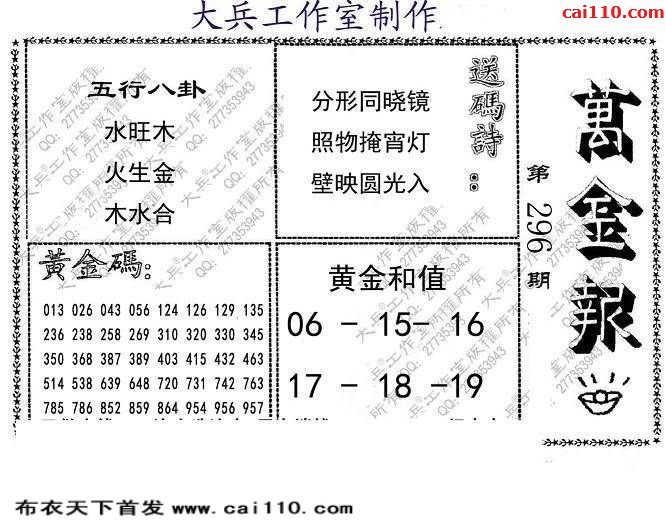 大兵工作室制作
cai110.com
五行八卦
水旺木
火生金
木水合
分形同晓镜
照物掩宵灯
壁映圆光入
送碼詩：
萬金報
第296期
黃金碼：
013 026 043 056 124 126 129 135
236 238 258 269 310 320 330 345
350 368 387 389 403 415 432 463
514 538 639 648 720 731 742 763
785 786 852 859 864 954 956 957
黄金和值
06 - 15- 16
17 - 18 -19
大兵工作室版權所有
QQ: 277353943
布衣天下首发 www.cai110.com